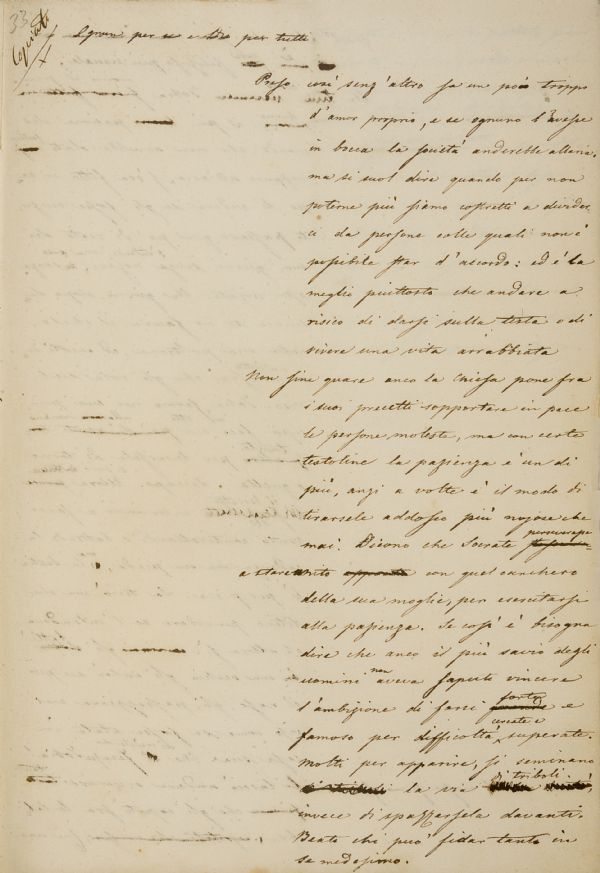 33
Copiato
Ognun per se e Dio per tutti
Preso così senz'altro sa un poco troppo
d'amor proprio, e se ognuno l'avesse
in bocca la società anderebbe all'aria.
ma si suol dire quando per non
poterne più siamo costretti a divider-
ci da persone colle quali non è
possibile star d'accordo: ed è la
meglio piuttosto che andare a
risico di darsi sulla testa o di
vivere una vita arrabbiata
Non sine quare anco la Chiesa pone fra
i suoi precetti sopportare in pace
le persone moleste, ma con certe
testoline la pazienza è un di
più, anzi a volte è il modo di
tirarsele addosso più nojose che
mai. Dicono che Socrate perseverasse
a stare unito con quel canchero
della sua moglie, per esercitarsi
alla pazienza. Se così è bisogna
dire che anco il più savio degli
uomini non aveva saputo vincere
l'ambizione di farsi forte e
famoso per difficoltà cercate e superate.
Molti per apparire, si seminano
la via di triboli,
invece di spazzarsela davanti.
Beato chi può fidar tanto in
se medesimo.